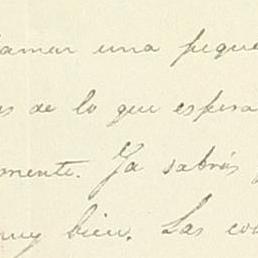 una peque
de lo que espera
mente. Ya sabrás
muy bien. Las co